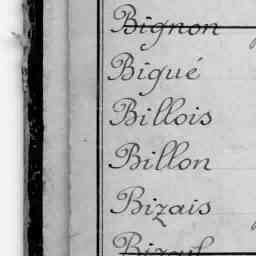 Bignon
Bigué
Billois
Billon
Bizais
Bizeul